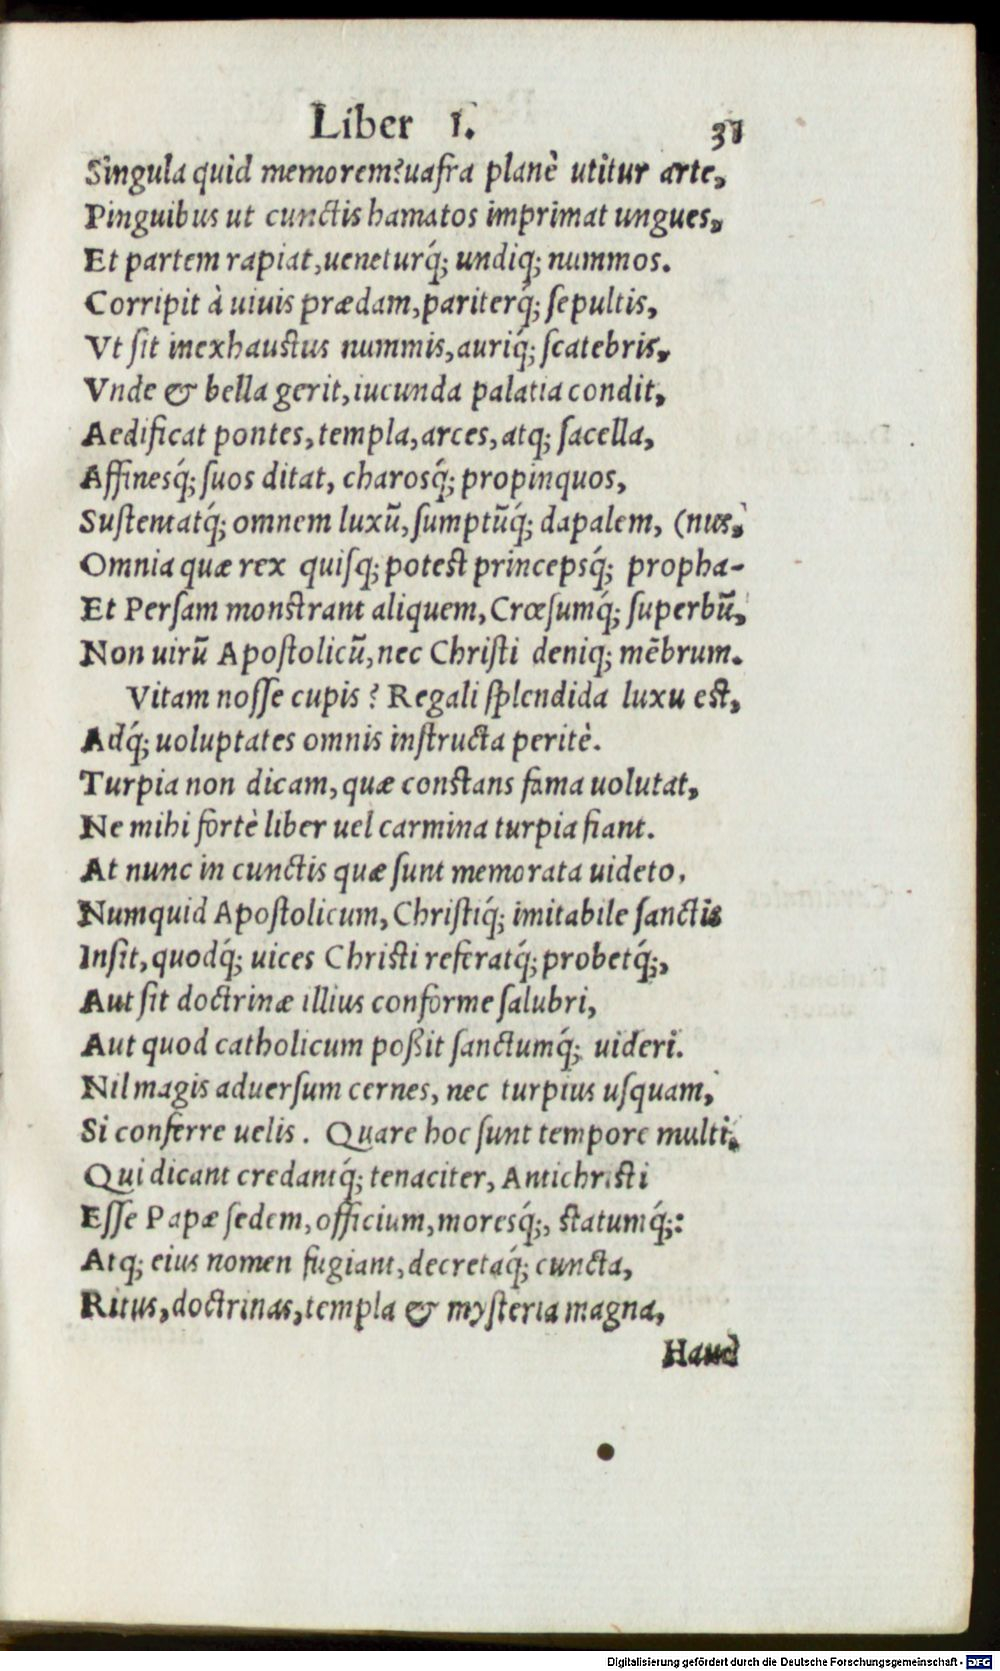 Liber I. 31
Singula quid memorem? uafra planè utitur arte,
Pinguibus ut cunctis hamatos imprimat ungues,
Et partem rapiat, ueneturq́; undiq; nummos.
Corripit à uiuis prædam, pariterq́; sepultis,
Vt sit inexhaustus nummis, auriq́; scatebris,
Vnde & bella gerit, iucunda palatia condit,
Aedificat pontes, templa, arces, atq; sacella,
Affinesq́; suos ditat, charosq́; propinquos,
Sustentatq́; omnem luxũ, sumptũq́; dapalem, (nus,
Omnia quæ rex quisq; potest princepsq́; propha-
Et Persam monstrant aliquem, Crœsumq́; superbũ,
Non uirũ Apostolicũ, nec Christi deniq; mẽbrum.
Vitam nosse cupis? Regali splendida luxu est,
Adq́; uoluptates omnis instructa peritè.
Turpia non dicam, quæ constans fama uolutat,
Ne mihi fortè liber uel carmina turpia fiant.
At nunc in cunctis quæ sunt memorata uideto,
Numquid Apostolicum, Christiq́; imitabile sanctis
Insit, quodq́; uices Christi referatq́; probetq́;,
Aut sit doctrinæ illius conforme salubri,
Aut quod catholicum poßit sanctumq́; uideri.
Nil magis aduersum cernes, nec turpius usquam,
Si conferre uelis. Quare hoc sunt tempore multi,
Qui dicant credantq́; tenaciter, Antichristi
Esse Papæ sedem, officium, moresq́;, statumq́;:
Atq; eius nomen fugiant, decretaq́; cuncta,
Ritus, doctrinas, templa & mysteria magna,
Haud
Digitalisierung gefördert durch die Deutsche Forschungsgemeinschaft - DFG